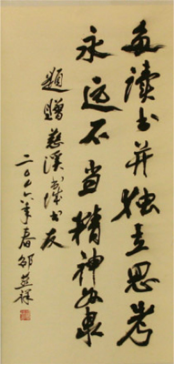 多读书并独立思考
永远不当精神奴隶
题赠慈溪书城书友
二〇〇六年春邵燕祥